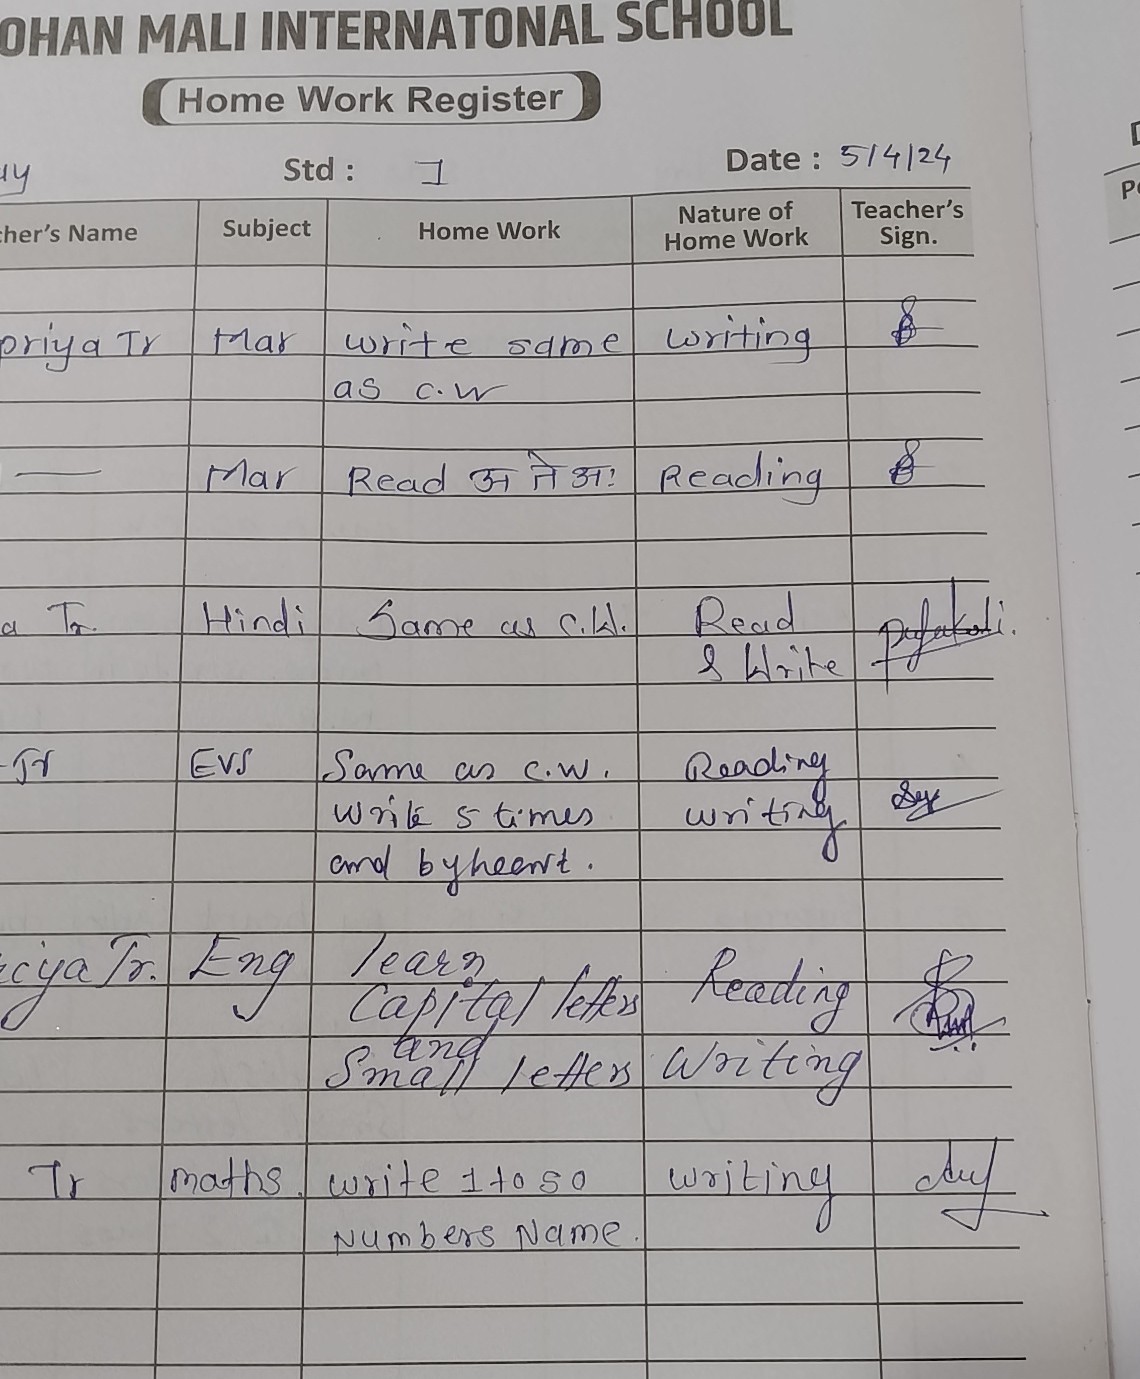 OHAN MALI INTERNATONAL SCHOOL
Home Work Register
Std : I Date : 5/4/24
cher's Name Subject Home Work Nature of Home Work Teacher's Sign.
priya Tr Mar write same writing
as c.w
Mar Read अ ते अः Reading
a Tr. Hindi Same as C.W. Read
& Write
Tr EVS Same as c.w. Reading
write 5 times writing
and byheart.
Tr. Eng learn
Capital letters Reading
and
Small letters Writing
Tr maths. write 1 to 50 writing
Numbers Name.